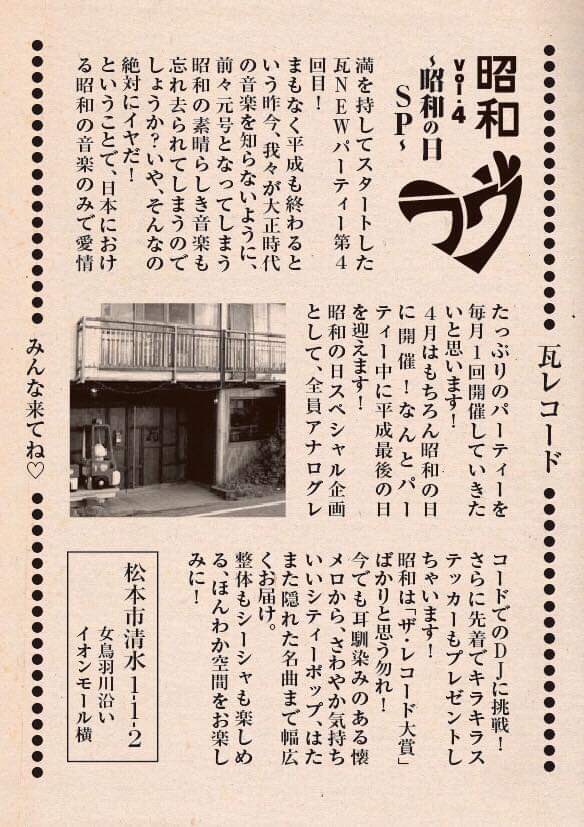 昭和
ラヴ
vol.4
～昭和の日
SP～
満を持してスタートした
瓦NEWパーティー第4
回目！
まもなく平成も終わると
いう昨今、我々が大正時代
の音楽を知らないように、
前々元号となってしまう
昭和の素晴らしき音楽も
忘れ去られてしまうので
しょうか？いや、そんなの
絶対にイヤだ！
ということで、日本におけ
る昭和の音楽のみで愛情
瓦レコード
たっぷりのパーティーを
毎月1回開催していきた
いと思います！
4月はもちろん昭和の日
に開催！なんとパー
ティー中に平成最後の日
を迎えます！
昭和の日スペシャル企画
として、全員アナログレ
みんな来てね♡
コードでのDJに挑戦！
さらに先着でキラキラス
テッカーもプレゼントし
ちゃいます！
昭和は「ザ・レコード大賞」
ばかりと思う勿れ！
今でも耳馴染みのある懐
メロから、さわやか気持ち
いいシティーポップ、はた
また隠れた名曲まで幅広
くお届け。
整体もシーシャも楽しめ
る、ほんわか空間をお楽し
みに！
松本市清水1-1-2
女鳥羽川沿い
イオンモール横